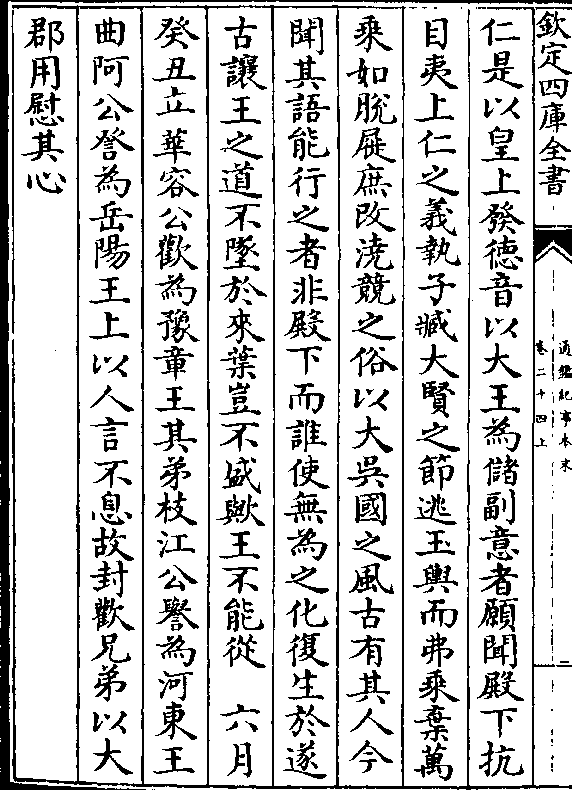 欽定四庫全書
通鑑紀事本末
卷二十四上
二
仁是以皇上發德音以大王為儲副意者願聞殿下抗
目夷上仁之義執子臧大賢之節逃玉輿而弗乘棄萬
乘如脫屣庶改澆競之俗以大吳國之風古有其人今
聞其語能行之者非殿下而誰使無為之化復生於遂
古讓王之道不墜於來葉豈不盛歟王不能從　六月
癸丑立華容公歡為豫章王其弟枝江公譽為河東王
曲阿公詧為岳陽王上以人言不息故封歡兄弟以大
郡用慰其心